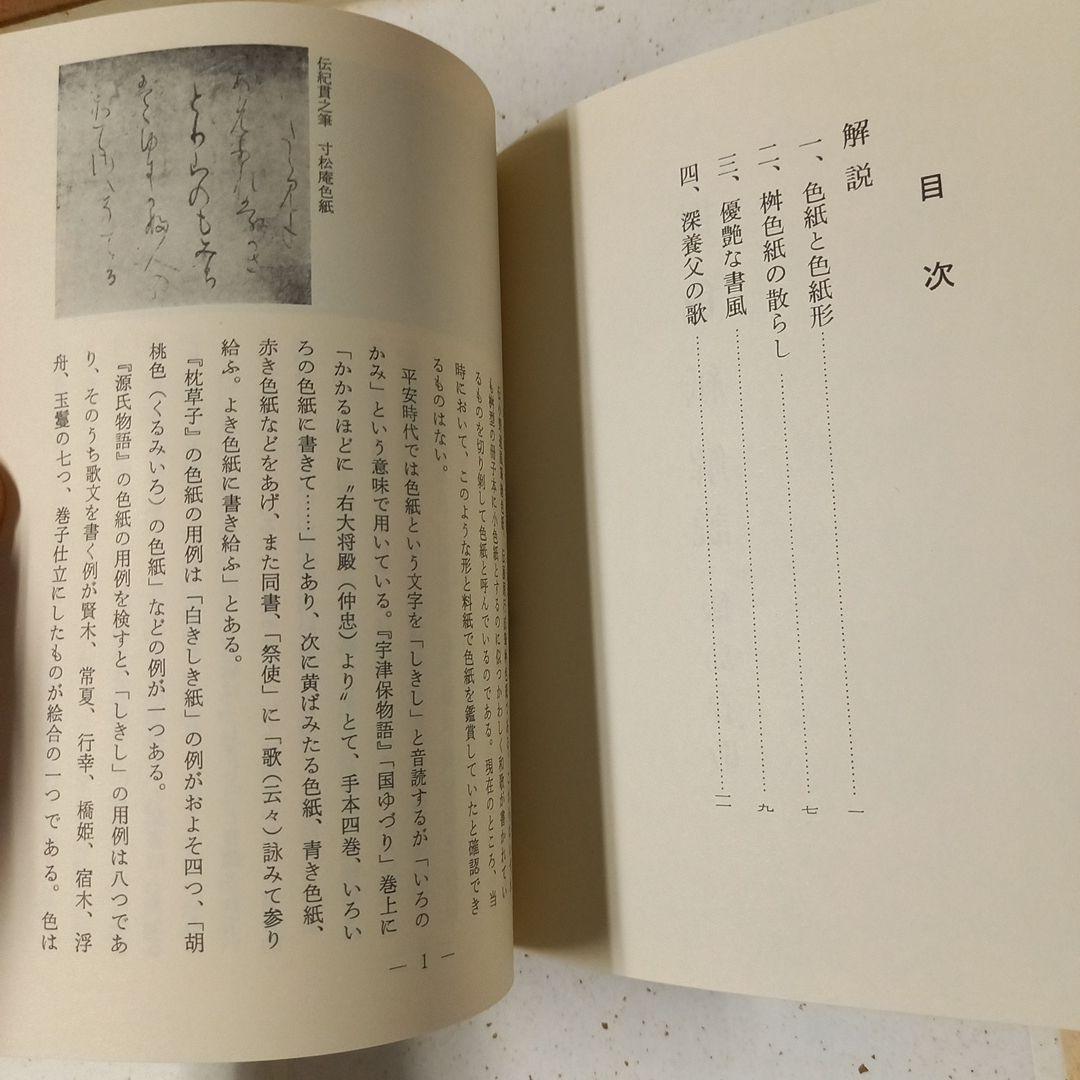 目次
解説
一、色紙と色紙形……………………一
二、桝色紙の散らし……………………七
三、優艶な書風……………………九
四、深養父の歌……………………一一
伝紀貫之筆　寸松庵色紙
も桝型の冊子本に小色紙とするのに似つかわしく和歌が書かれてい
るものを切り剝して色紙と呼んでいるのである。現在のところ、当
時において、このような形と料紙で色紙を鑑賞していたと確認でき
るものはない。
平安時代では色紙という文字を「しきし」と音読するが「いろの
かみ」という意味で用いている。『宇津保物語』「国ゆづり」巻上に
「かかるほどに〝右大将殿（仲忠）より〟とて、手本四巻、いろい
ろの色紙に書きて……」とあり、次に黄ばみたる色紙、青き色紙、
赤き色紙などをあげ、また同書、「祭使」に「歌（云々）詠みて参り
給ふ。よき色紙に書き給ふ」とある。
『枕草子』の色紙の用例は「白きしき紙」の例がおよそ四つ、「胡
桃色（くるみいろ）の色紙」などの例が一つある。
『源氏物語』の色紙の用例を検すと、「しきし」の用例は八つであ
り、そのうち歌文を書く例が賢木、常夏、行幸、橋姫、宿木、浮
舟、玉鬘の七つ、巻子仕立にしたものが絵合の一つである。色は
— 1 —